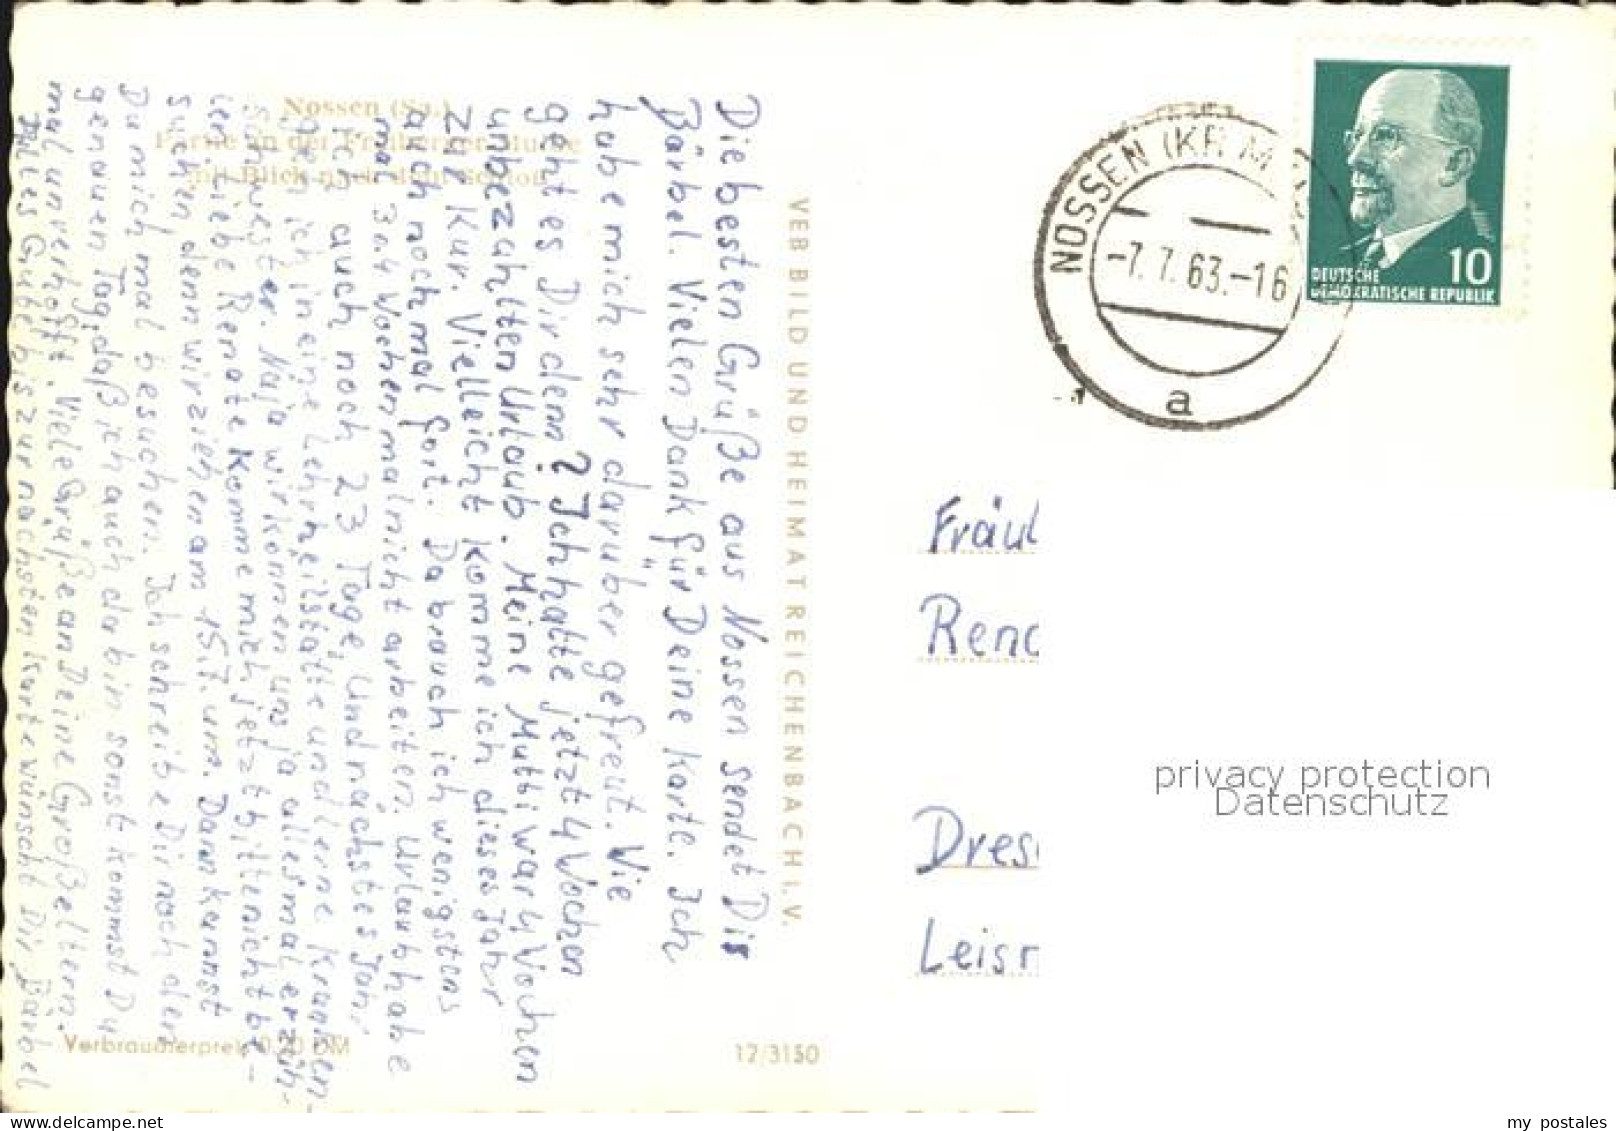 Nossen (Sa.)
Partie an der Freiberger Straße
mit Blick nach dem Schloß
Die besten Grüße aus Nossen sendet Dir
Bärbel. Vielen Dank für Deine Karte. Ich
habe mich sehr darüber gefreut. Wie
geht es Dir denn? Ich hatte jetzt 4 Wochen
unbezahlten Urlaub. Meine Mutti war 4 Wochen
zur Kur. Vielleicht komme ich dieses Jahr
auch noch mal fort. Da brauch ich wenigstens
mal 3-4 Wochen mal nicht arbeiten. Urlaub habe
ich auch noch 23 Tage. Und nächstes Jahr
geh ich in eine Lehrheilstätte und lerne Kranken-
schwester. Naja wir können uns ja alles mal erzäh-
len. Liebe Renate komme mich jetzt bitte nicht be-
suchen, denn wir ziehen am 15.7. um. Dann kannst
Du mich mal besuchen. Ich schreibe Dir noch den
genauen Tag, daß ich auch da bin sonst kommst Du
mal unverhofft. Viele Grüße an Deine Großeltern.
Alles Gute bis zur nächsten Karte wünscht Dir Bärbel
VEB BILD UND HEIMAT REICHENBACH I. V.
Verbraucherpreis 0,20 DM
17/3150
NOSSEN (KR M
-7. 7. 63.-16
a
DEUTSCHE
DEMOKRATISCHE REPUBLIK
10
Fräul
Rena
Dres
Leisn
privacy protection
Datenschutz
my postales
www.delcampe.net